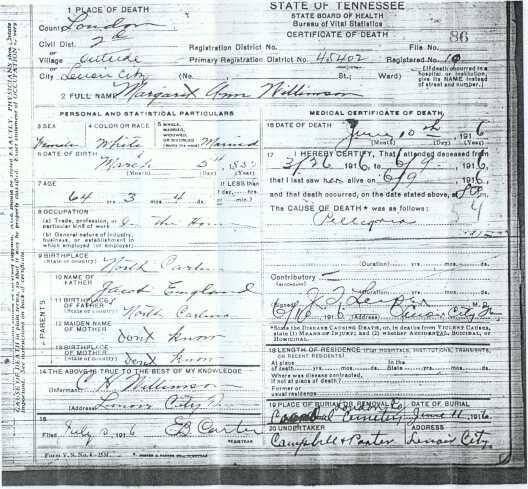 1 PLACE OF DEATH
STATE OF TENNESSEE
STATE BOARD OF HEALTH
Bureau of Vital Statistics
CERTIFICATE OF DEATH
County Loudon
Civil Dist. 2
Village Outside
City Lenoir City
Registration District No.
File No. 86
Primary Registration District No. 45402
Registered No. 10
(No. St.; Ward)
(If death occurred in a hospital or institution, give its NAME instead of street and number.)
2 FULL NAME Margaret Ann Williamson
PERSONAL AND STATISTICAL PARTICULARS
3 SEX Female
4 COLOR OR RACE White
5 SINGLE, MARRIED, WIDOWED, OR DIVORCED Married
6 DATE OF BIRTH March
(Month) (Day) (Year)
7 AGE
64 yrs. 3 mos. 4 ds.
If LESS than 1 day, hrs.
8 OCCUPATION
(a) Trade, profession, or particular kind of work In the Home
(b) General nature of industry, business, or establishment in which employed (or employer)
9 BIRTHPLACE (State or country) North Carolina
PARENTS
10 NAME OF FATHER Jacob England
11 BIRTHPLACE OF FATHER (State or country) North Carolina
12 MAIDEN NAME OF MOTHER Dont Know
13 BIRTHPLACE OF MOTHER (State or country) Dont Know
14 THE ABOVE IS TRUE TO THE BEST OF MY KNOWLEDGE
(Informant) C H Williamson
(Address) Lenoir City
15
Filed July 2 1916 EB Carter
REGISTRAR
Form V. S. No. 4-25M.
MEDICAL CERTIFICATE OF DEATH
16 DATE OF DEATH June 10th, 1916
(Month) (Day) (Year)
17 I HEREBY CERTIFY, That I attended deceased from
3/26 1916, to 6/9 1916
that I last saw her alive on 6/9 1916
and that death occurred, on the date stated above, at
The CAUSE OF DEATH * was as follows:
Pellegria
(Duration) yrs. mos. ds.
Contributory
(SECONDARY)
(Duration) yrs. mos. ds.
(Signed) M. D.
6/16 1916 (Address) Lenoir City
*State the DISEASE CAUSING DEATH, or, in deaths from VIOLENT CAUSES, state (1) MEANS OF INJURY; and (2) whether ACCIDENTAL, SUICIDAL, or HOMICIDAL.
18 LENGTH OF RESIDENCE (FOR HOSPITALS, INSTITUTIONS, TRANSIENTS, OR RECENT RESIDENTS)
At place of death yrs. mos. ds. State yrs. mos. ds.
Where was disease contracted, if not at place of death?
Former or usual residence
19 PLACE OF BURIAL OR REMOVAL
DATE OF BURIAL
Cemetery June 11 1916
20 UNDERTAKER
ADDRESS
Campbell & Carter Lenoir City